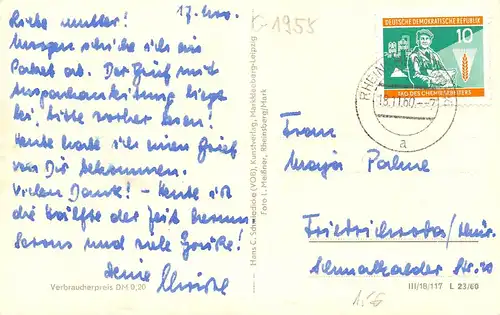 17. Nov.
K-1955
Liebe Mutter!
Morgen schicke ich ein
Paket ab. Der Brief mit
Auspackanleitung liegt
bei, bitte vorher lesen!
Heute habe ich einen Brief
von Dir bekommen.
Vielen Dank! - Heute ist
die Hälfte der Zeit herum.
und viele Grüße!
Deine
Verbraucherpreis DM 0,20
Hans C. Schmiedicke (VOB), Kunstverlag, Markkleeberg-Leipzig
Foto L. Meißner, Rheinsberg/Mark
DEUTSCHE DEMOKRATISCHE REPUBLIK
10
TAG DES CHEMIEARBEITERS
RHEINS
18.11.60.--7
a
Frau
Maria Palme
Friedrichroda/Thür.
Schmalkalder Str. 20
III/18/117 L 23/60